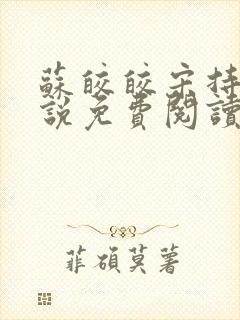 蘇皎皎宋持
說免費閱讀
菲碩莫著